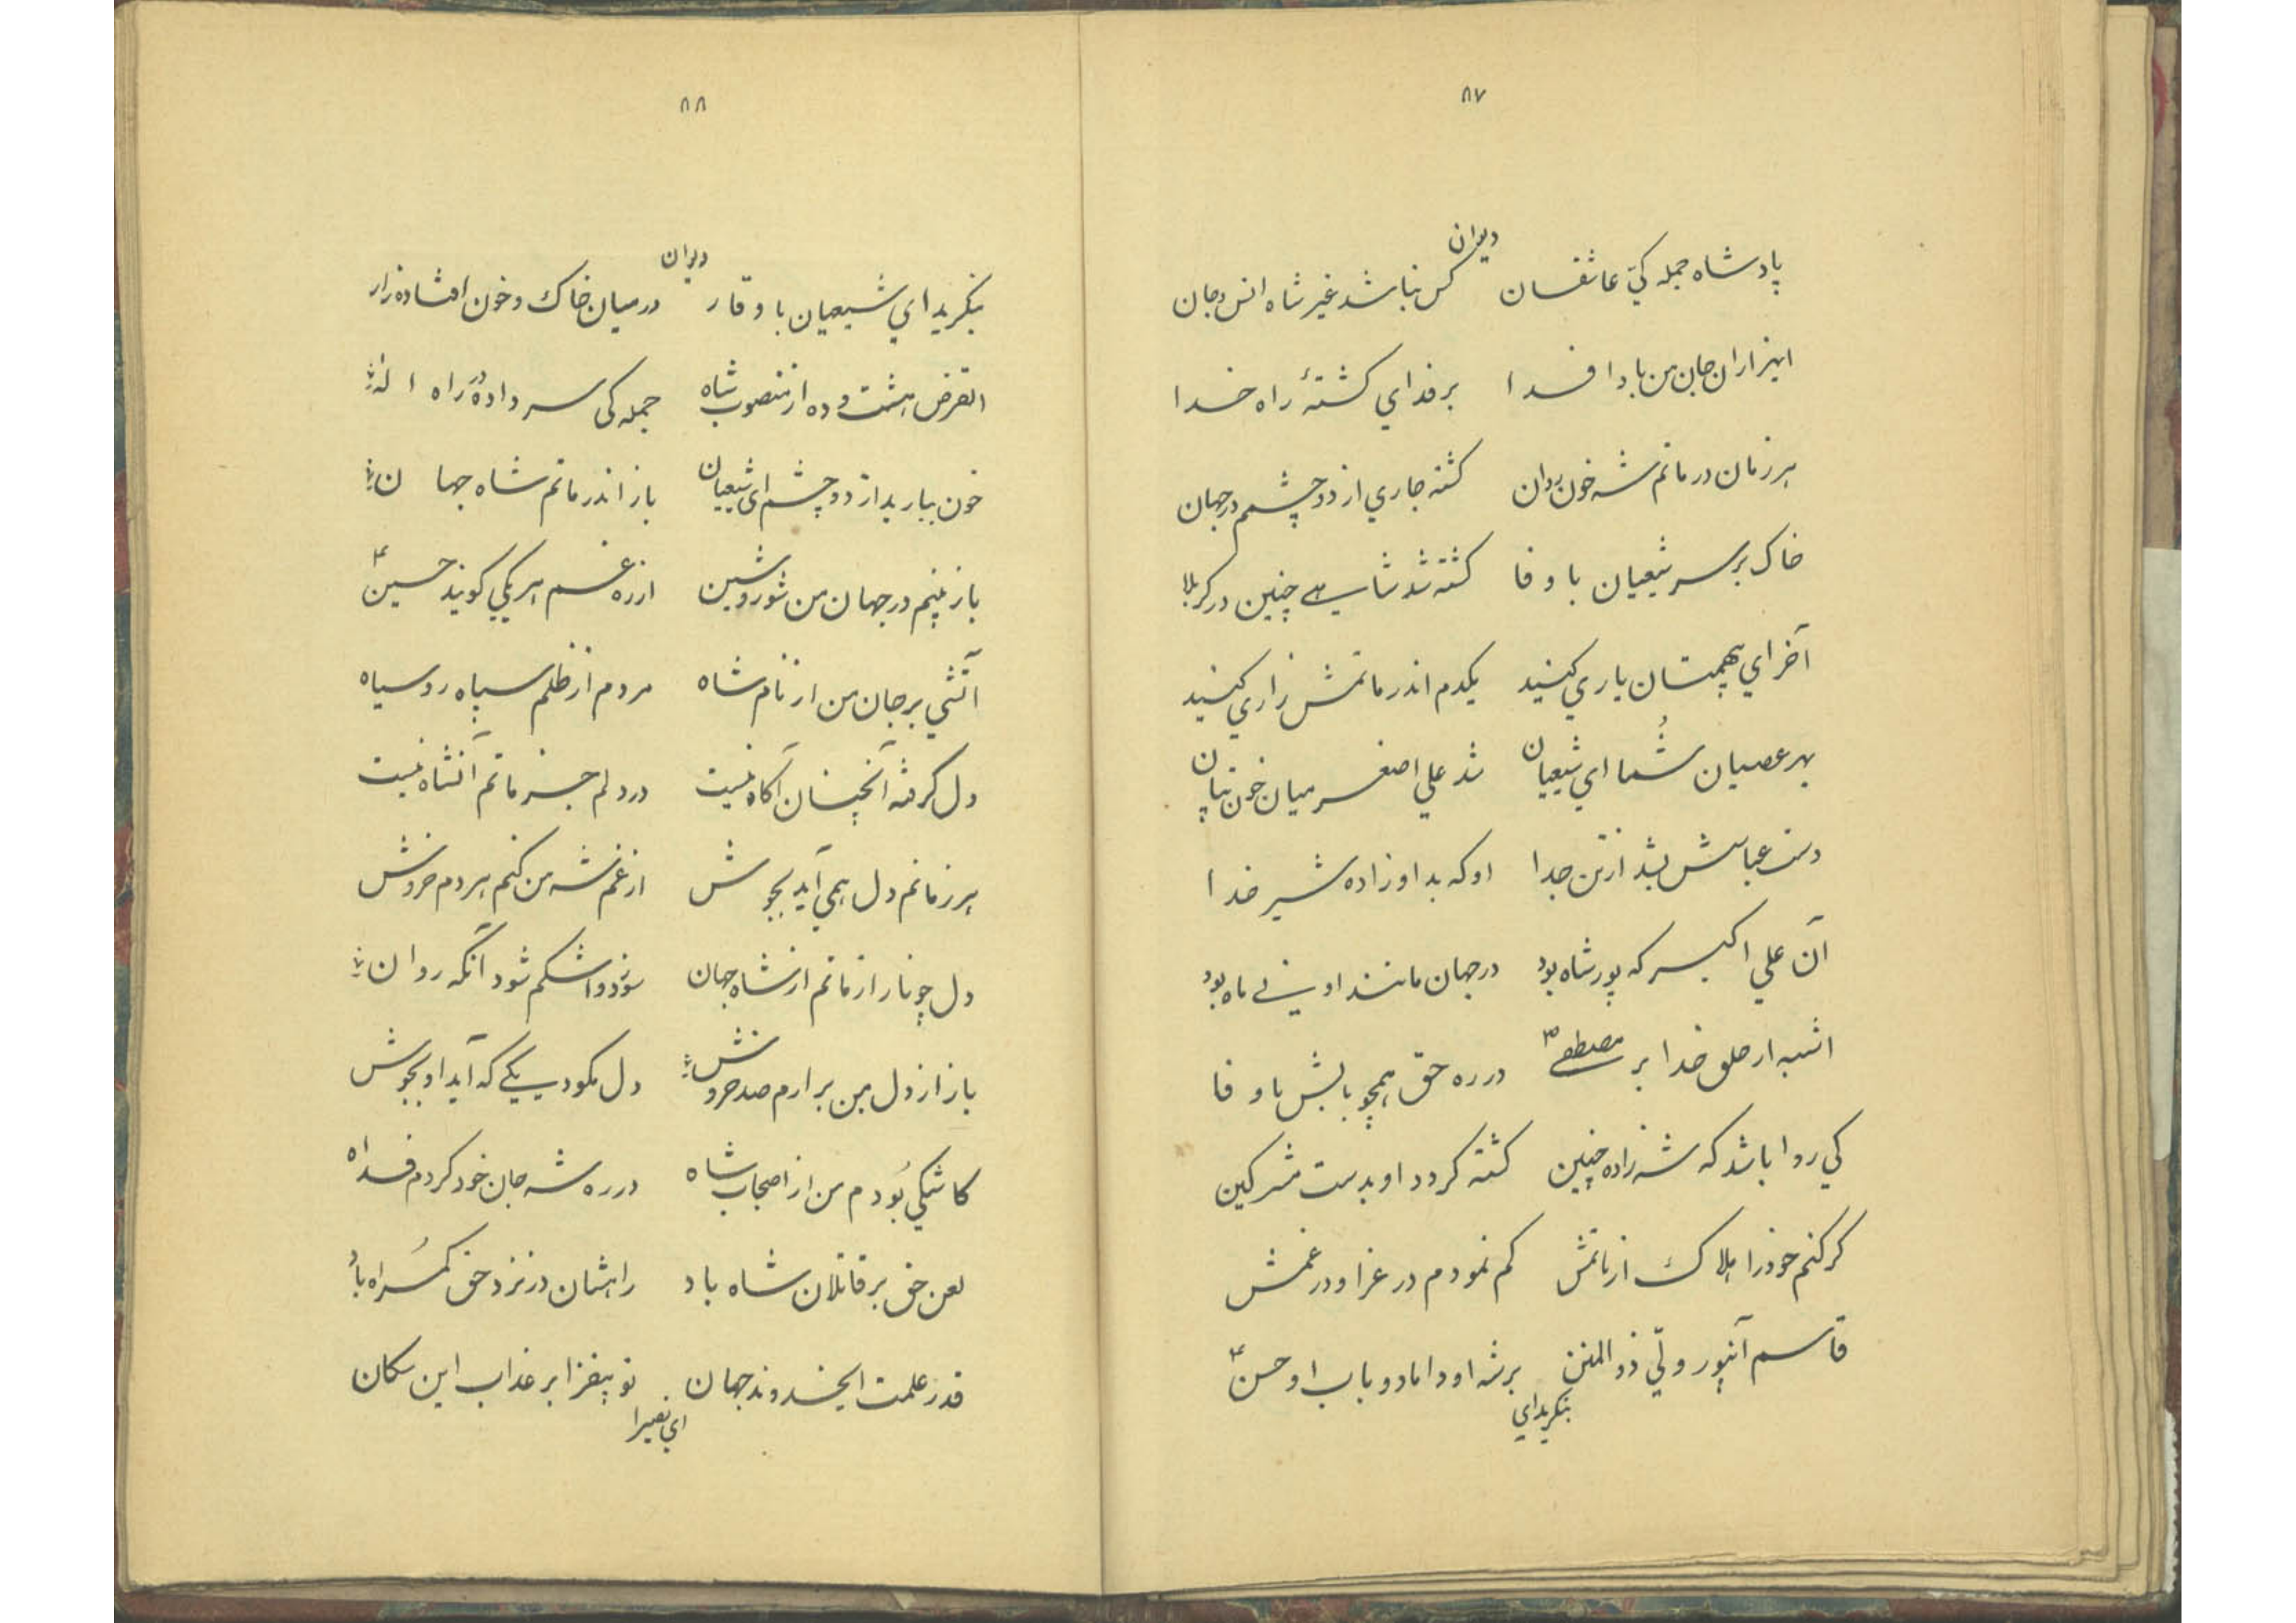 ۸۷
دیوان
پادشاه جمله کیّ عاشقسان کس نباشد غیر شاه انس وجان
ایهزاران جان من بادا فسدا بر فدای کشتهٔ راه خسدا
هر زمان در ماتم شه خون روان کشته جاری از دو چشمم در جهان
خاک بر سر شیعیان با وفا کشته شد شاهی چنین در کربلا
آخر ای بهمتان یاری کنید یکدم اندر ماتمش زاری کنید
بهر عصیان شُما ای شیعیان شد علی اصغر میان خون تپان
دست عباسش بشد از تن جدا او که بد او زاده شیر خدا
آن علی اکبر که پور شاه بود در جهان مانند او نی ماه بود
اشبه از خلق خدا بر مصطفی ص در ره حق همچو بابش با وفا
کی روا باشد که شه زاده چنین کشته کردد او بدست مشرکین
کر کنم خود را هلاک از ماتمش کم نمودم در عزا و در غمش
قاسم آنپور ولّی ذو المنن بر شه او داماد و باب او حسن ع
بنکرید ای
۸۸
دیوان
بنکرید ای شیعیان با وقار در میان خاک و خون افتاده زار
القرض هشت و ده از منصوب شاه جمله کی سر داده در راه اله
خون ببارید از دو چشم ای شیعیان باز اندر ماتم شاه جهان
باز بینم در جهان من شور و شین از ره غم هر یکی کویند حسین ع
آتشی بر جان من از نام شاه مردم از ظلم سپاه رو سیاه
دل کرفته آنچنان آکاه نیست در دلم جز ماتم آنشاه نیست
هر زمانم دل همی آید بجوش از غم شه من کنم هر دم خروش
دل چو نار از ماتم از شاه جهان سوزد و اشکم شود آنکه روان
باز از دل من برارم صد خروش دل مکو دیک که آید او بجوش
کاشکی بُودم من از اصحاب شاه در ره شه جان خود کردم فداه
لعن حق بر قاتلان شاه باد راهشان در نزد حق کمُراه باد
قدر علمت ایخدوند جهان تو بیفزا بر عذاب این سکان
ای نصیرا